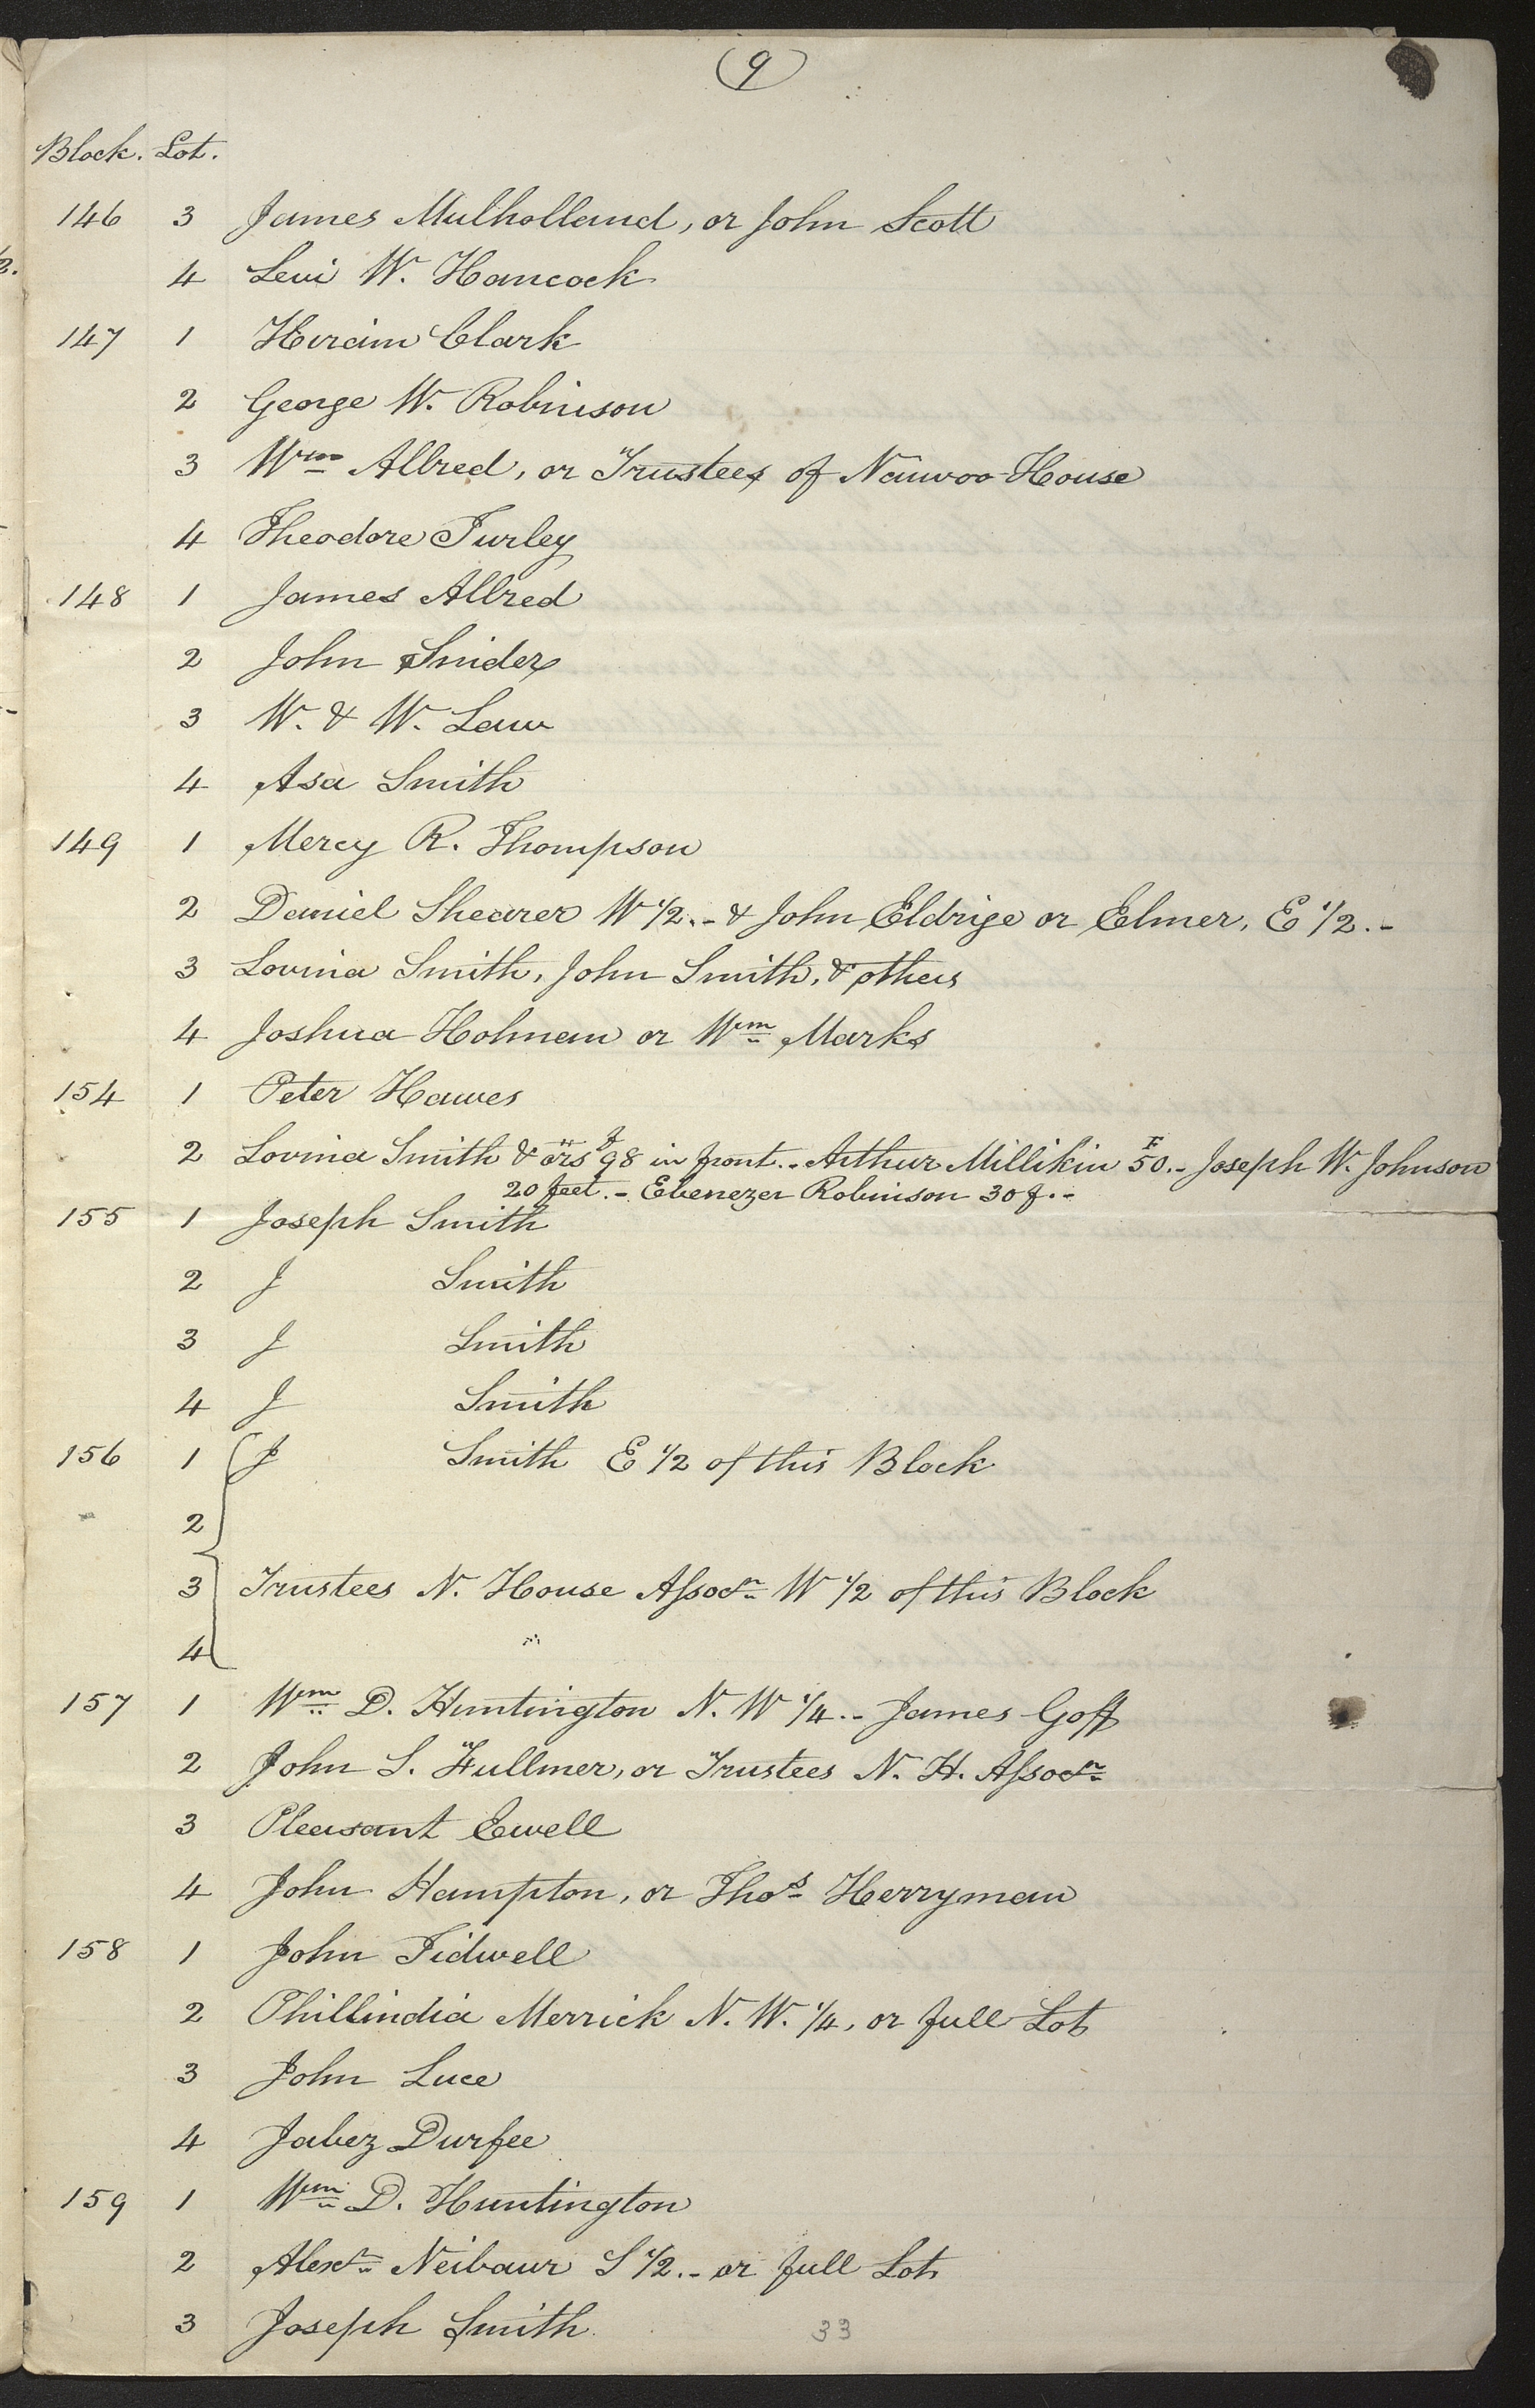 9
Block. Lot.
146 3 James Mulholland, or John Scott
4 Levi W. Hancock
147 1 Hiram Clark
2 George W. Robinson
3 Wm Allred, or Trustees of Nauvoo House
4 Theodore Turley
148 1 James Allred
2 John Snider
3 W. & W. Law
4 Asa Smith
149 1 Mercy R. Thompson
2 Daniel Shearer W 1/2.- & John Eldrige or Elmer, E 1/2.-
3 Lovina Smith, John Smith, & others
4 Joshua Holman or Wm Marks
154 1 Peter Hawes
2 Lovina Smith & ors 98 f in front.- Arthur Millikin 50 F.- Joseph W. Johnson
20 feet.- Ebenezer Robinson 30 f.-
155 1 Joseph Smith
2 J Smith
3 J Smith
4 J Smith
156 1 J Smith E 1/2 of this Block
2
3 Trustees N. House Assocn W 1/2 of this Block
4
157 1 Wm D. Huntington N. W 1/4.- James Goff
2 John S. Fullmer, or Trustees N. H. Assocn
3 Pleasant Ewell
4 John Hampton, or Thos Herryman
158 1 John Tidwell
2 Phillindia Merrick N. W. 1/4, or full Lot
3 John Luce
4 Jabez Durfee
159 1 Wm D. Huntington
2 Alexr Neibaur S 1/2.- or full Lot
3 Joseph Smith
33